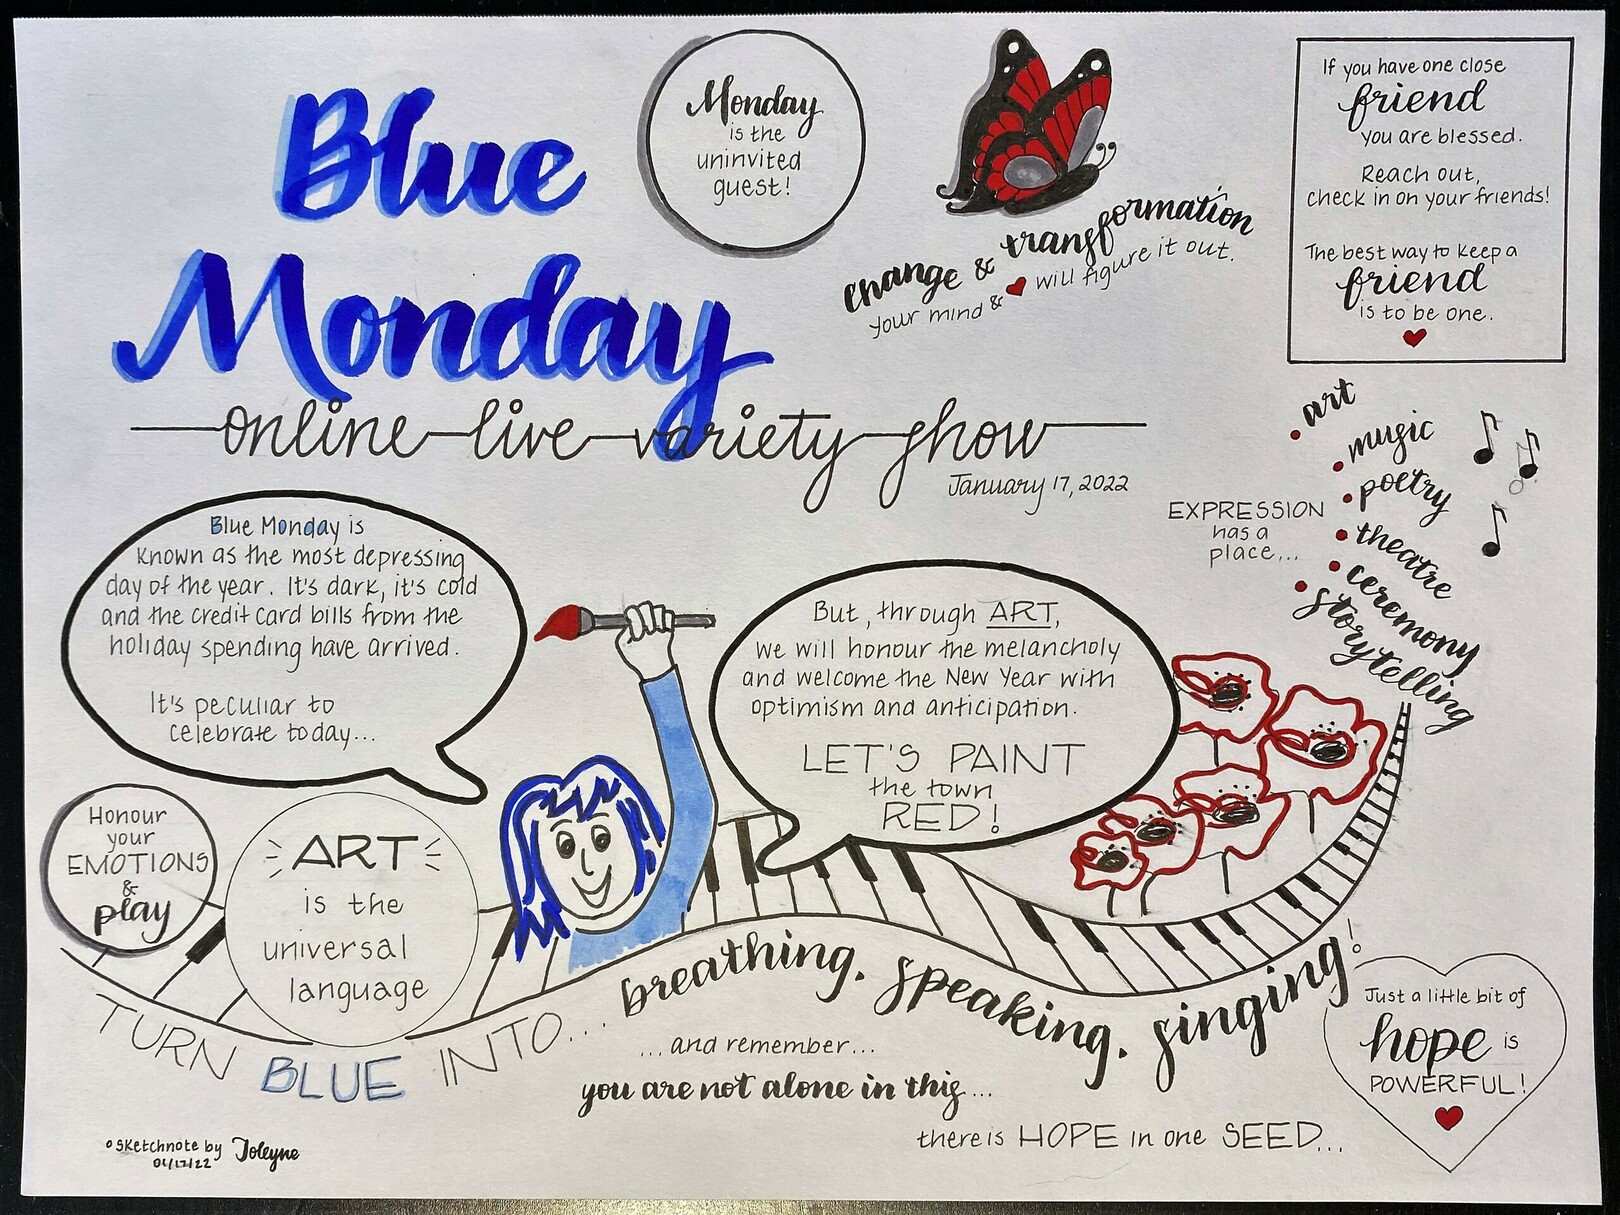 Blue
Monday
online live variety show
January 17, 2022
Monday
is the
uninvited
guest!
change & transformation
your mind & ♥ will figure it out.
If you have one close
friend
you are blessed.
Reach out,
check in on your friends!
The best way to keep a
friend
is to be one.
EXPRESSION
has a
place...
• art
• music
• poetry
• theatre
• ceremony
• storytelling
Blue Monday is
known as the most depressing
day of the year. It's dark, it's cold
and the credit card bills from the
holiday spending have arrived.
It's peculiar to
celebrate today...
But, through ART,
we will honour the melancholy
and welcome the New Year with
optimism and anticipation.
LET'S PAINT
the town
RED!
Honour
your
EMOTIONS
&
play
ART
is the
universal
language
TURN BLUE INTO... breathing. speaking. singing!
...and remember...
you are not alone in this...
there is HOPE in one SEED...
Just a little bit of
hope is
POWERFUL!
°Sketchnote by Joleyne
01/17/22